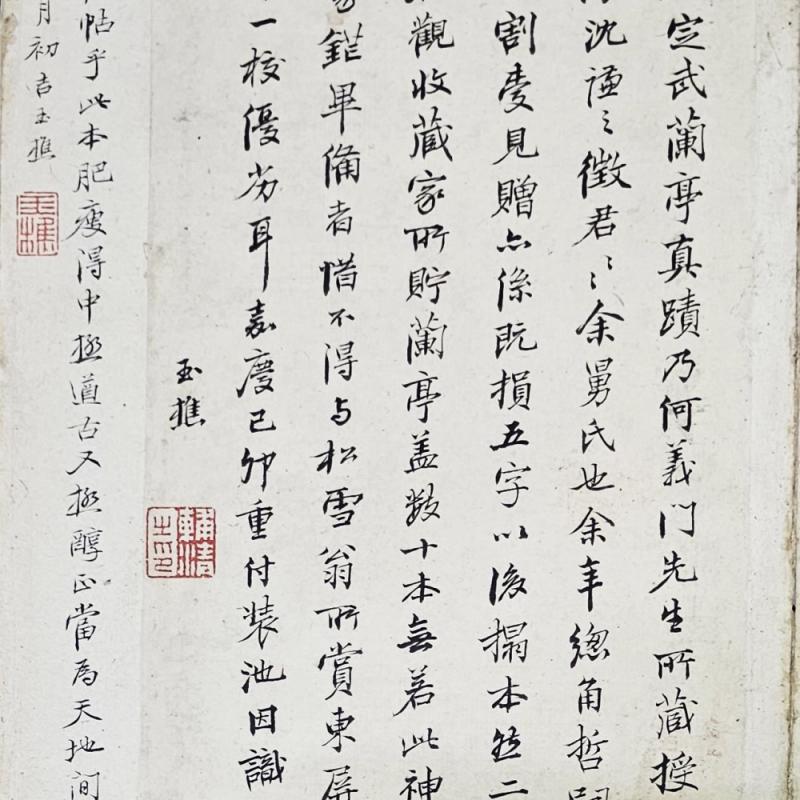 定武蘭亭真蹟乃何義門先生所蔵授
沈謙〻徵君〻余舅氏也余年總角哲
割愛見贈亦係既損五字以後搨本然二
觀收蔵家所貯蘭亭蓋數十本無若此神
鋩畢備者惜不得与松雪翁所賞東屏
一校優劣耳嘉慶己卯重付裝池因識
玉樵
輔清
王印
帖乎此本肥瘦得中極遒古又極醇正當為天地間
月初吉玉樵
玉樵